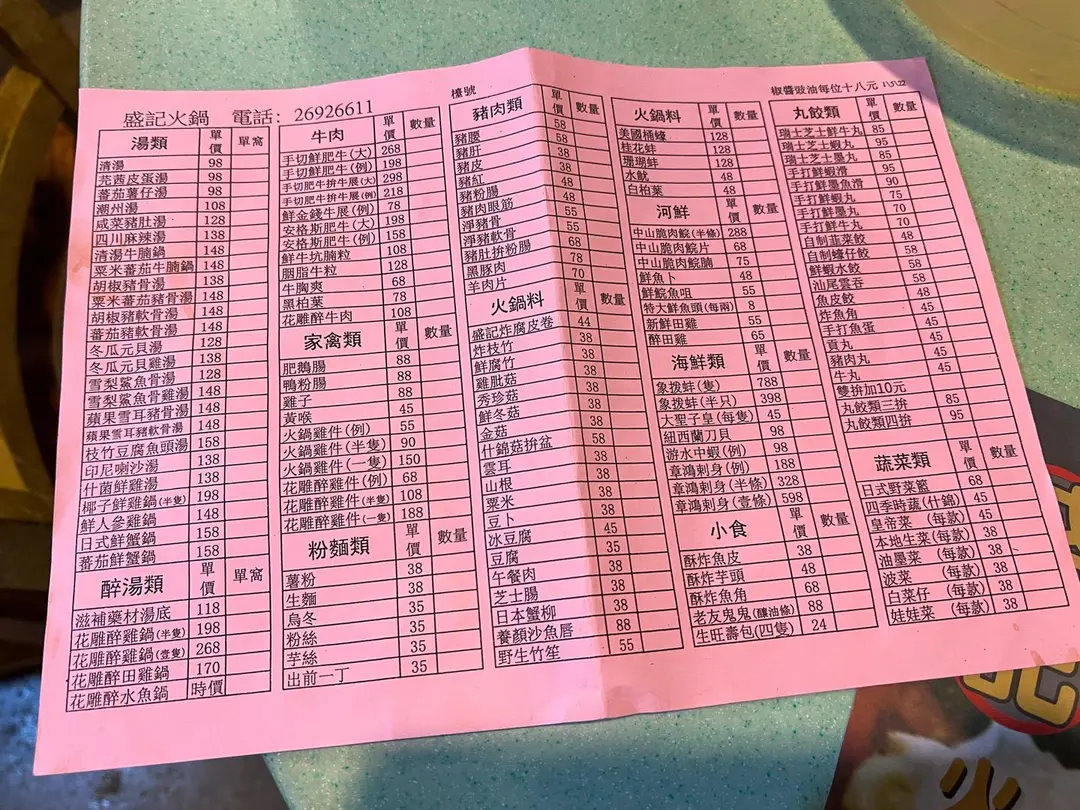 盛記火鍋 電話: 26926611
檯號
椒醬豉油每位十八元
湯類 單價 單窩
清湯 98
芫茜皮蛋湯 98
蕃茄薯仔湯 98
潮州湯 108
咸菜豬肚湯 128
四川麻辣湯 138
清湯牛腩鍋 148
粟米蕃茄牛腩鍋 148
胡椒豬骨湯 138
粟米蕃茄豬骨湯 148
胡椒豬軟骨湯 148
蕃茄豬軟骨湯 148
冬瓜元貝湯 128
冬瓜元貝雞湯 138
雪梨鯊魚骨湯 128
雪梨鯊魚骨雞湯 148
蘋果雪耳豬骨湯 148
蘋果雪耳豬軟骨湯 148
枝竹豆腐魚頭湯 158
印尼喇沙湯 138
什菌鮮雞湯 138
椰子鮮雞鍋(半隻) 198
鮮人參雞鍋 148
日式鮮蟹鍋 158
蕃茄鮮蟹鍋 158
醉湯類 單價 單窩
滋補藥材湯底 118
花雕醉雞鍋(半隻) 198
花雕醉雞鍋(壹隻) 268
花雕醉田雞鍋 170
花雕醉水魚鍋 時價
牛肉 單價 數量
手切鮮肥牛(大) 268
手切鮮肥牛(例) 198
手切肥牛拚牛展(大) 298
手切肥牛拚牛展(例) 218
鮮金錢牛展(例) 78
安格斯肥牛(大) 198
安格斯肥牛(例) 158
鮮牛坑腩粒 108
胭脂牛粒 128
牛胸爽 68
黑柏葉 78
花雕醉牛肉 108
家禽類 單價 數量
肥鵝腸 88
鴨粉腸 88
雞子 88
黃喉 45
火鍋雞件(例) 55
火鍋雞件(半隻) 90
火鍋雞件(一隻) 150
花雕醉雞件(例) 68
花雕醉雞件(半隻) 108
花雕醉雞件(一隻) 188
粉麵類 單價 數量
薯粉 38
生麵 38
烏冬 35
粉絲 35
芋絲 35
出前一丁 35
豬肉類 單價 數量
豬腰 58
豬肝 58
豬皮 38
豬紅 38
豬粉腸 48
豬肉眼筋 48
淨豬骨 55
淨豬軟骨 55
豬肚拚粉腸 68
黑豚肉 78
羊肉片 70
火鍋料 單價 數量
盛記炸腐皮卷 44
炸枝竹 38
鮮腐竹 38
雞肶菇 38
秀珍菇 38
鮮冬菇 38
金菇 38
什錦菇拚盆 58
雲耳 38
山根 38
粟米 38
豆卜 38
冰豆腐 45
豆腐 35
午餐肉 38
芝士腸 38
日本蟹柳 38
養顏沙魚唇 88
野生竹笙 55
火鍋料 單價 數量
美國桶蠔 128
桂花蚌 128
珊瑚蚌 128
水魷 48
白柏葉 48
河鮮 單價 數量
中山脆肉鯇(半條) 288
中山脆肉鯇片 68
中山脆肉鯇腩 75
鮮魚卜 48
鮮鯇魚咀 55
特大鮮魚頭(每兩) 8
新鮮田雞 55
醉田雞 65
海鮮類 單價 數量
象拨蚌(隻) 788
象拨蚌(半只) 398
大聖子皇(每隻) 45
紐西蘭刀貝 98
游水中蝦(例) 98
章鴻刺身(例) 188
章鴻刺身(半條) 328
章鴻刺身(壹條) 598
小食 單價 數量
酥炸魚皮 38
酥炸芋頭 48
酥炸魚角 68
老友鬼鬼(釀油條) 88
生旺壽包(四隻) 24
丸餃類 單價 數量
瑞士芝士鮮牛丸 85
瑞士芝士蝦丸 95
瑞士芝士墨丸 85
手打鮮蝦滑 95
手打鮮墨魚滑 90
手打鮮蝦丸 75
手打鮮墨丸 70
手打鮮牛丸 70
自制韮菜餃 48
自制蠔仔餃 58
鮮蝦水餃 58
汕尾雲吞 58
魚皮餃 48
炸魚角 45
手打魚蛋 45
貢丸 45
豬肉丸 45
牛丸 45
雙拚加10元
丸餃類三拚 85
丸餃類四拚 95
蔬菜類 單價 數量
日式野菜籃 68
四季時蔬(什錦) 45
皇帝菜 (每款) 45
本地生菜(每款) 38
油墨菜 (每款) 38
波菜 (每款) 38
白菜仔 (每款) 38
娃娃菜 (每款) 38
記
火